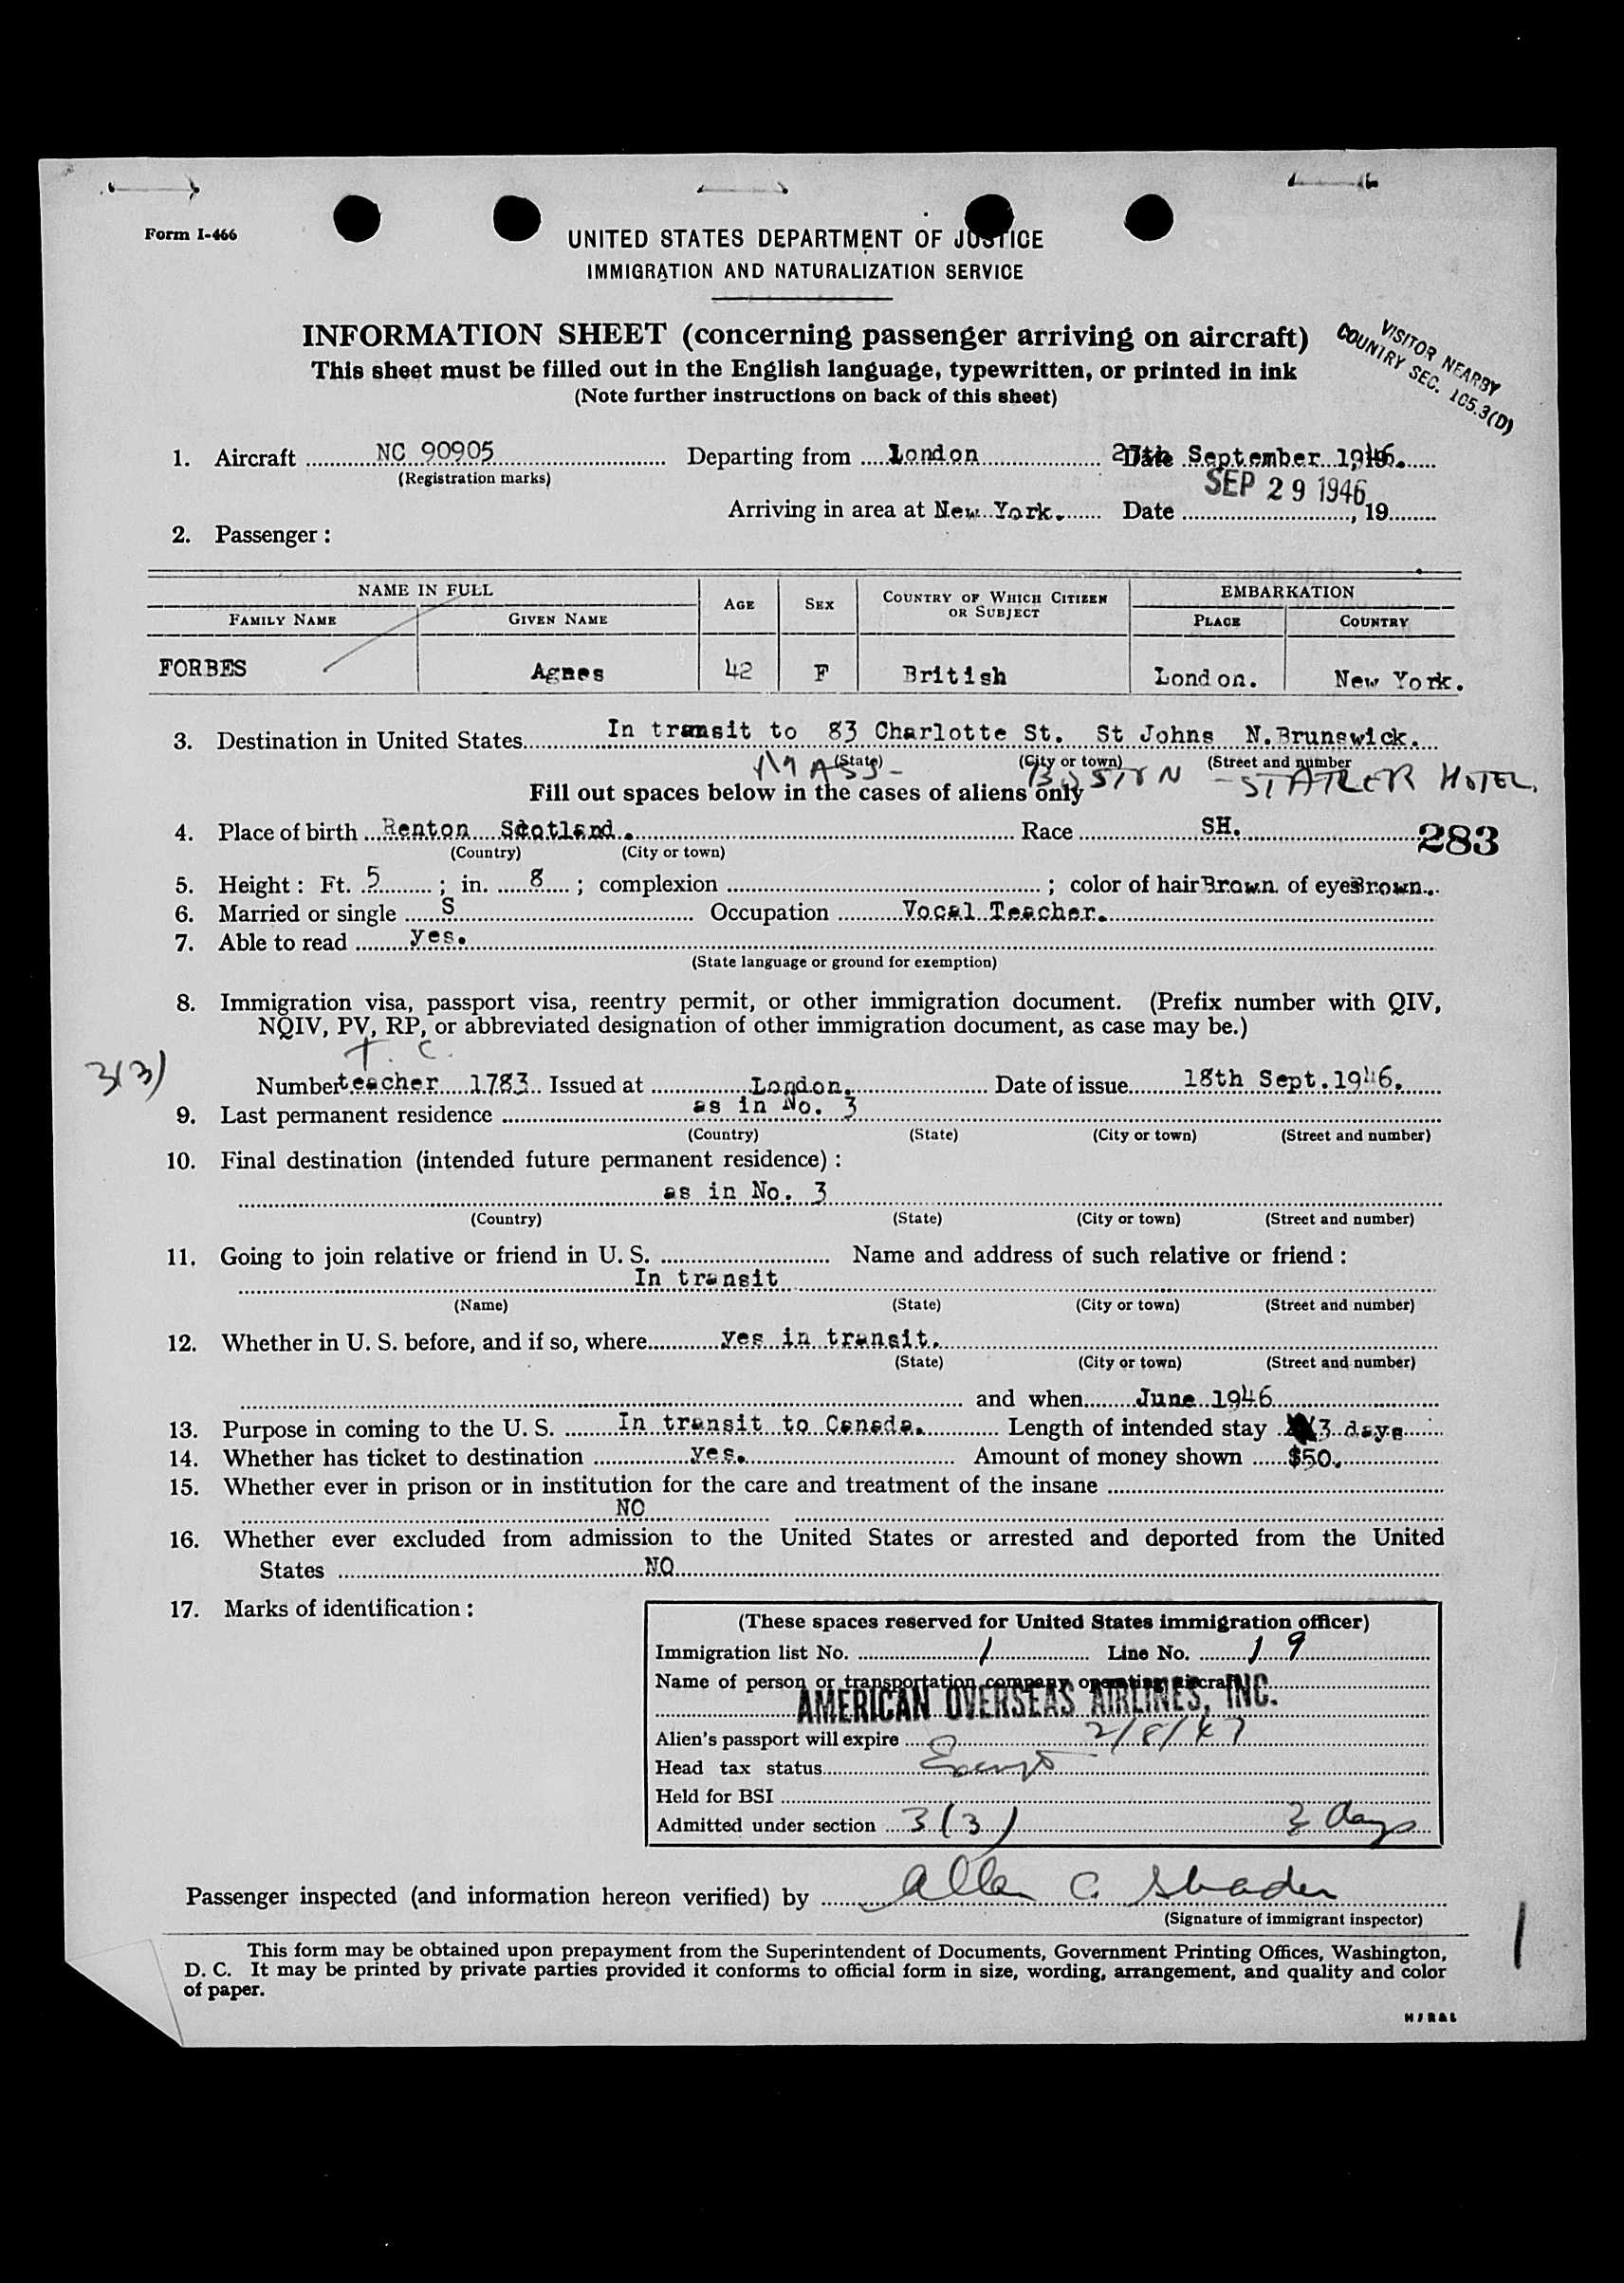 Form I-466
UNITED STATES DEPARTMENT OF JUSTICE
IMMIGRATION AND NATURALIZATION SERVICE
INFORMATION SHEET (concerning passenger arriving on aircraft)
This sheet must be filled out in the English language, typewritten, or printed in ink
(Note further instructions on back of this sheet)
VISITOR NEARBY
COUNTRY SEC. 105.3(D)
1. Aircraft NC 90905 Departing from London Date September 1946.
(Registration marks)
SEP 29 1946
Arriving in area at New York. Date , 19
2. Passenger :
NAME IN FULL AGE SEX COUNTRY OF WHICH CITIZEN OR SUBJECT EMBARKATION
FAMILY NAME GIVEN NAME PLACE COUNTRY
FORBES Agnes 42 F British London. New York.
3. Destination in United States In transit to 83 Charlotte St. St Johns N.Brunswick.
(State) (City or town) (Street and number
MASS - BOSTON - STATLER HOTEL.
Fill out spaces below in the cases of aliens only
4. Place of birth Renton Scotland. Race SH.
283
(Country) (City or town)
5. Height : Ft. 5 ; in. 8 ; complexion ; color of hair Brown of eyes Brown.
6. Married or single S Occupation Vocal Teacher.
7. Able to read yes.
(State language or ground for exemption)
8. Immigration visa, passport visa, reentry permit, or other immigration document. (Prefix number with QIV,
NQIV, PV, RP, or abbreviated designation of other immigration document, as case may be.)
T. C.
3(3)
Number teacher 1783 Issued at London. Date of issue 18th Sept.1946.
9. Last permanent residence as in No. 3
(Country) (State) (City or town) (Street and number)
10. Final destination (intended future permanent residence) :
as in No. 3
(Country) (State) (City or town) (Street and number)
11. Going to join relative or friend in U. S. Name and address of such relative or friend :
In transit
(Name) (State) (City or town) (Street and number)
12. Whether in U. S. before, and if so, where yes in transit.
(State) (City or town) (Street and number)
and when June 1946
13. Purpose in coming to the U. S. In transit to Canada. Length of intended stay 3 days
14. Whether has ticket to destination yes. Amount of money shown $50.
15. Whether ever in prison or in institution for the care and treatment of the insane
NO
16. Whether ever excluded from admission to the United States or arrested and deported from the United
States NO
17. Marks of identification :
(These spaces reserved for United States immigration officer)
Immigration list No. 1 Line No. 19
Name of person or transportation company operating aircraft
AMERICAN OVERSEAS AIRLINES, INC.
Alien's passport will expire 2/8/47
Head tax status Exempt
Held for BSI
Admitted under section 3(3) 3 days
Passenger inspected (and information hereon verified) by Allen C. Shader
(Signature of immigrant inspector)
This form may be obtained upon prepayment from the Superintendent of Documents, Government Printing Offices, Washington,
D. C. It may be printed by private parties provided it conforms to official form in size, wording, arrangement, and quality and color
of paper.